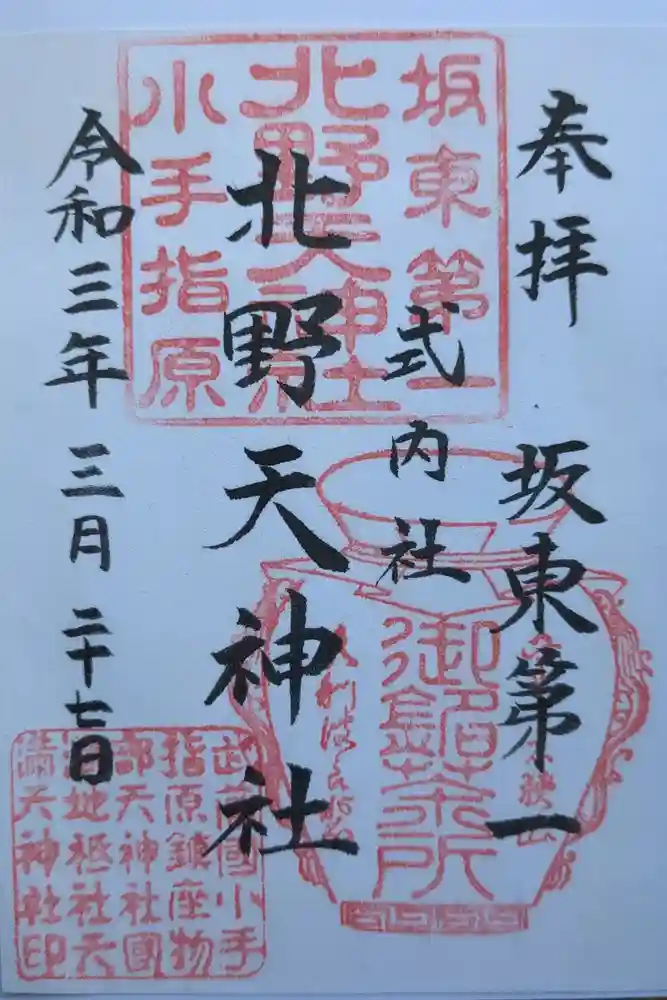 奉拝
坂東第一
式内社
北野天神社
令和三年三月二十七日
坂東第一
北野天神社
小手指原
御銘茶所
武蔵國小手
指原鎮座物
部天神社國
渭地祇社天
満天神社印